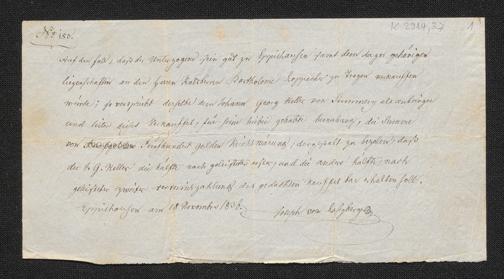 No 150.
K 2914,37
1
Auf den Fall, daß der Unterzogene sein gut zu Eppishausen samt dem dazu gehörigen
liegenschaften an den Herrn Ratsherrn Bartholome Zogen verkauffen
würde; so verspricht derselbe dem Johann Georg Keller von
und dieses Verkaufes, für seine hiebei gehabte bemühung, die Summe
von Fünfhundert gulden Reichswärung, dergestalt zu bezalen; daß
der J. G. Keller die hälfte nach geleistetem ersten, und die andere hälfte nach
geleisteter zweiter terminzahlung des gedachten kaufes bar erhalten soll.
Eppishausen am 18 November 1836.
Joseph von Laßberg